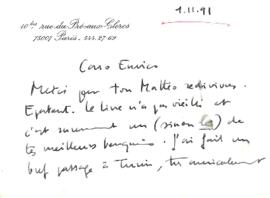 10 bis rue du Pré-aux-Clercs
75007 Paris. 544-27-69
1.11.91
Caro Enrico
Merci pour ton Matteo redivivus.
Epatant. Le livre n'a pas vieilli et
c'est surement un (sinon le) de
tes meilleurs bouquins. J'ai fait un
bref passage à Turin, très amicalement